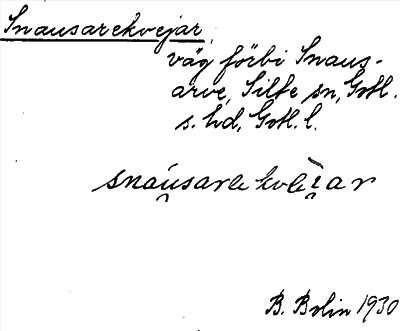 Snausarekvejar,
väg förbi Snaus-
arve, Silte sn, Gotl.
s. hd, Gotl. l.
snáu̯sarekvèi̯ar
B. Bolin 1930